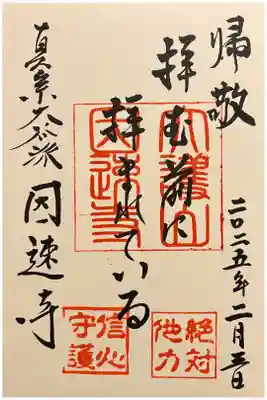 帰敬
拝む前に
拝まれている
二〇二五年二月三日
真宗大谷派
因速寺
絶対
他力
信心
守護